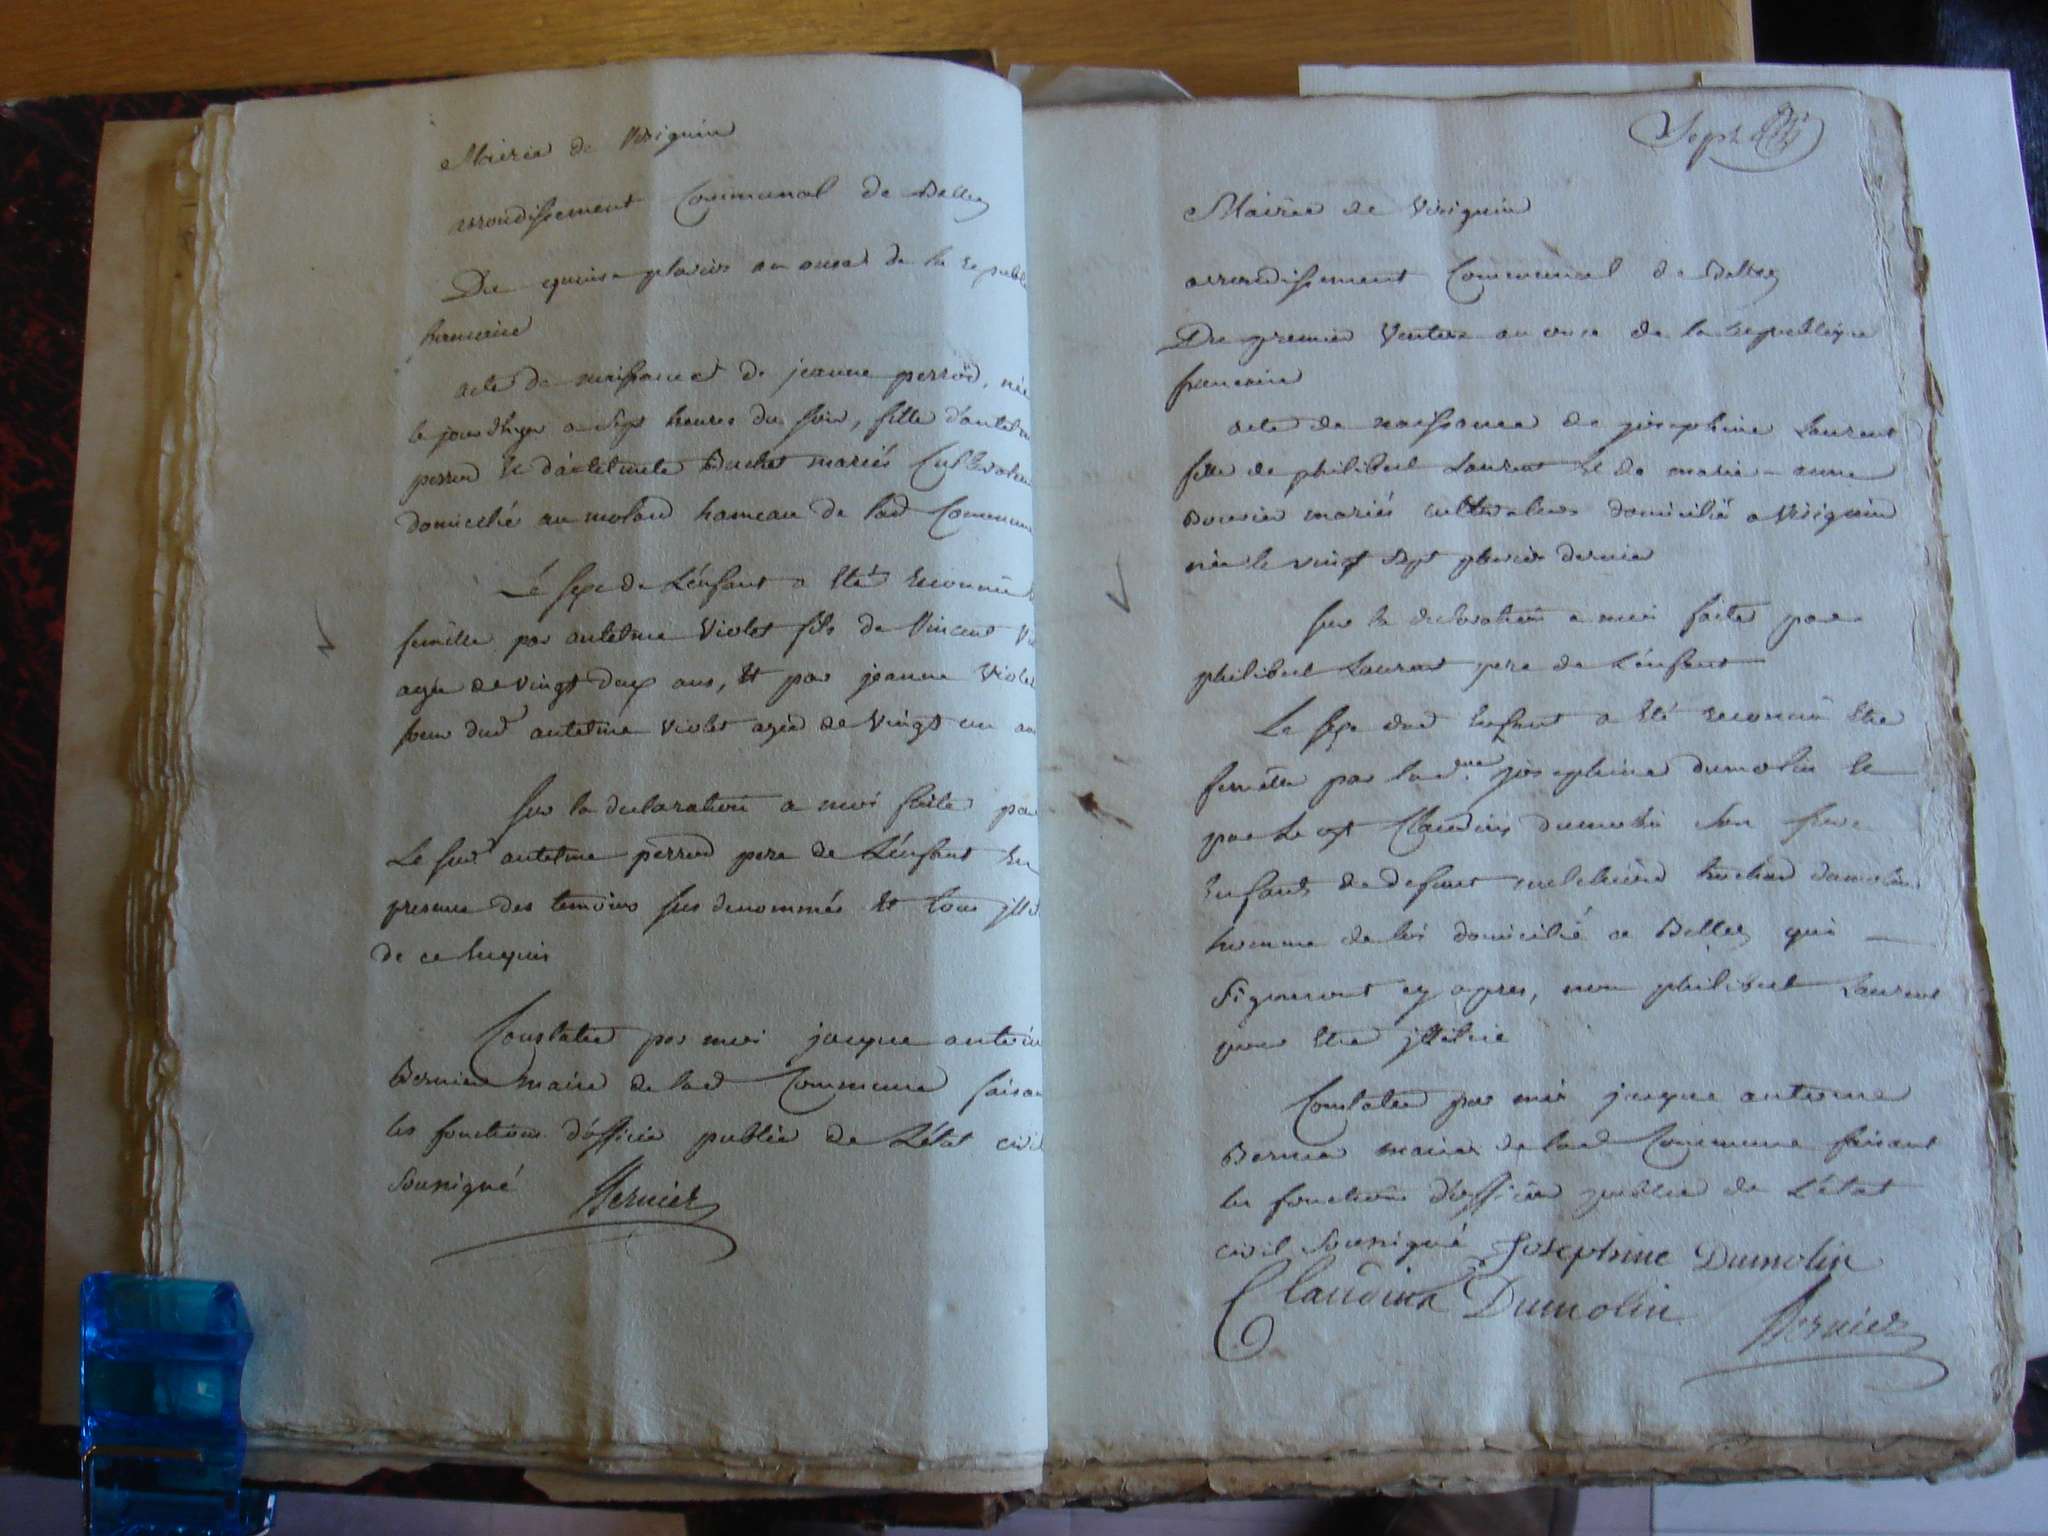 Mairie de Virignin
arrondissement Communal de Belley
Du quinze pluviose an onze de la republ
francaise
acte de naissance de jeanne perrod, née
le jour d'hyer a sept heures du soir, fille d'antelme
perrod et d'antelmete Buchet mariés Cultivateurs
domicilié au molard hameau de lad Commune
Le sexe de L'enfant a été reconnu
femelle par antelme Violet fils de Vincent
agée de vingt deux ans, et par jeanne Violet
soeur dud antelme Violet agée de vingt un an
sur la declaration a moi faite par
Le sud antelme perrod pere de L'enfant En
presence des temoins sus denommés et tous
de ce Enquis
Constatée par moi jacque antoine
Bernier maire de lad Commune faisant
les fonctions d'officier public de L'état civil
soussigné Bernier
Sept
Mairie de Virignin
arrondissement Communal de Belley
Du premier Ventose an onze de la republique
francaise
acte de naissance de josephine Laurent
fille de philibert Laurent et de marie-anne
mariés cultivateurs domicilié a Virignin
née le vingt sept pluviose dernier
sur la declaration a moi faite par
philibert Laurent pere de L'enfant
Le sexe dud Enfant a été reconnu Etre
femelle par lad.me josephine dumolin et
par le Claudius dumolin son frere
Enfants de defunt dumolin
homme de loi domicilié a Belley qui
signeront cy apres, non philibert Laurent
pour Etre
Constatée par moi jacque antoine
Bernier maire de lad Commune faisant
les fonctions d'officier public de L'état
civil soussigné Josephine Dumolin
Claudius Dumolin Bernier